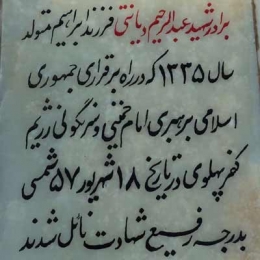 برادر شهید عبدالرحیم دیانتی فرزند ابراهیم متولد
سال ۱۳۳۵ که در راه برقراری جمهوری
اسلامی برهبری امام خمینی و سرنگونی رژیم
کفر پهلوی در تاریخ ۱۸ شهریور ۵۷ شمسی
بدرجه رفیع شهادت نائل شدند